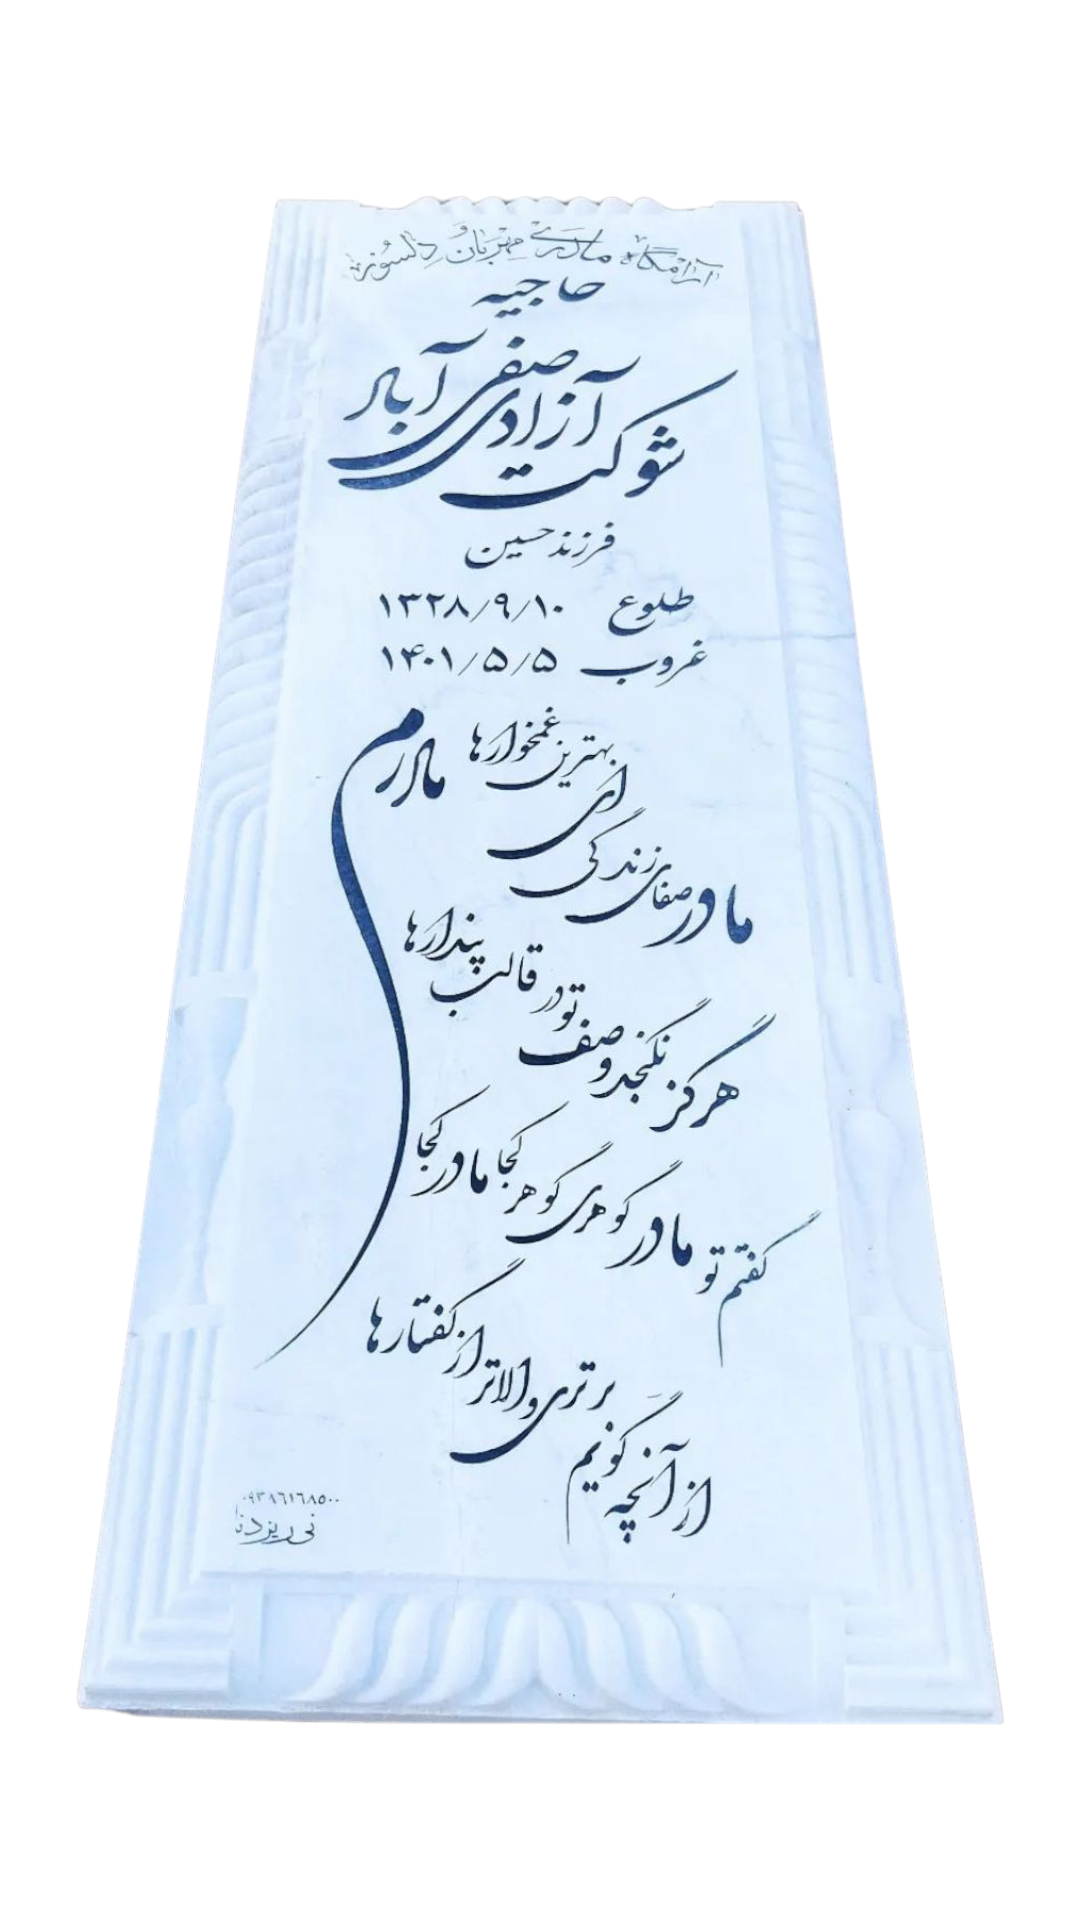 آرامگاه مادری مهربان و دلسوز
حاجیه
شوکت آزادی صفی آباد
فرزند حسین
طلوع ۱۳۲۸/۹/۱۰
غروب ۱۴۰۱/۵/۵
مادرم
مادر صفای زندگی ای بهترین غمخوارها
هرگز نگنجد وصف تو در قالب پندارها
گفتم تو مادر گوهری گوهر کجا مادر کجا
از آنچه گوئیم برتری والاتر از گفتارها
۰۹۳۸۶۱۶۸۵۰۰
نی ریزدنا